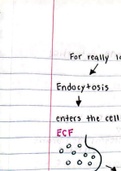 For really
Endocytosis
enters the cell
ECF